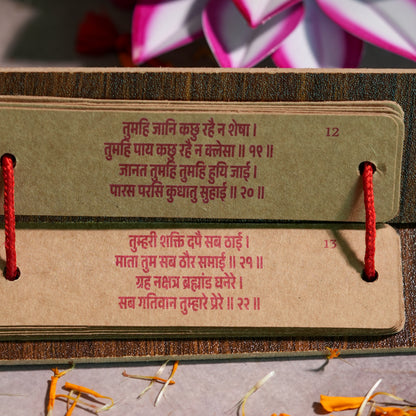 तुमहि जानि कछु रहै न शेषा ।
12
तुमहि पाय कछु रहै न क्लेसा ॥ १९ ॥
जानत तुमहिं तुमहिं हुयि जाई ।
पारस परसि कुधातु सुहाई ॥ २० ॥
तुम्हरी शक्ति दपै सब ठाई ।
13
माता तुम सब ठौर समाई ॥ २१ ॥
ग्रह नक्षत्र ब्रह्मांड घनेरे ।
सब गतिवान तुम्हारे प्रेरे ॥ २२ ॥